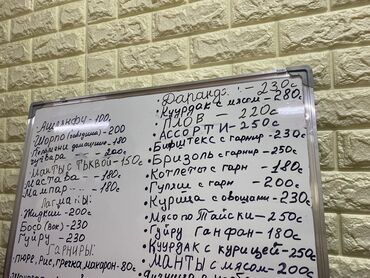 Ашлянфу - 100с
Шорпо (говядина) - 200
Пельмени домашние - 180
Чучвара - 200с
Манты с тыквой - 150с
Мастава - 180с
Мампар - 180с
Лагманы:
Жидкий - 200с
Босо (вок) - 230
Гуйру - 230
Гарниры:
Пюре, Рис, Гречка, макарон - 80с
230с
• Куурдак с мясом - 280с
• Плов - 220с
• Ассорти - 250с
• Бифштекс с гарнир - 230с
• Бризоль с гарнир - 250с
• Котлеты с гарн - 180с
• Гуляш с гарн - 200с
• Курица с овощами - 230с
• Мясо по Тайски - 250с
• Гуйру Ганфан - 180с
• Куурдак с курицей - 250с
• Манты с мясом - 200с